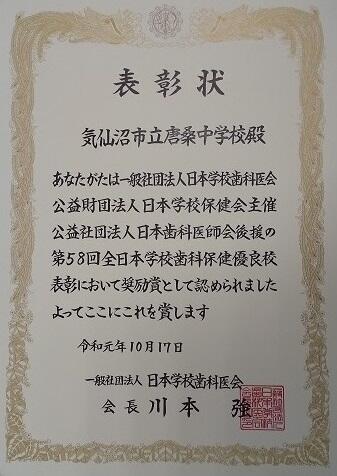 表彰状
気仙沼市立唐桑中学校殿
あなたがたは一般社団法人日本学校歯科医会
公益財団法人日本学校保健会主催
公益社団法人日本歯科医師会後援の
第58回全日本学校歯科保健優良校
表彰において奨励賞として認められました
よってここにこれを賞します
令和元年10月17日
一般社団法人 日本学校歯科医会
会長 川本 強